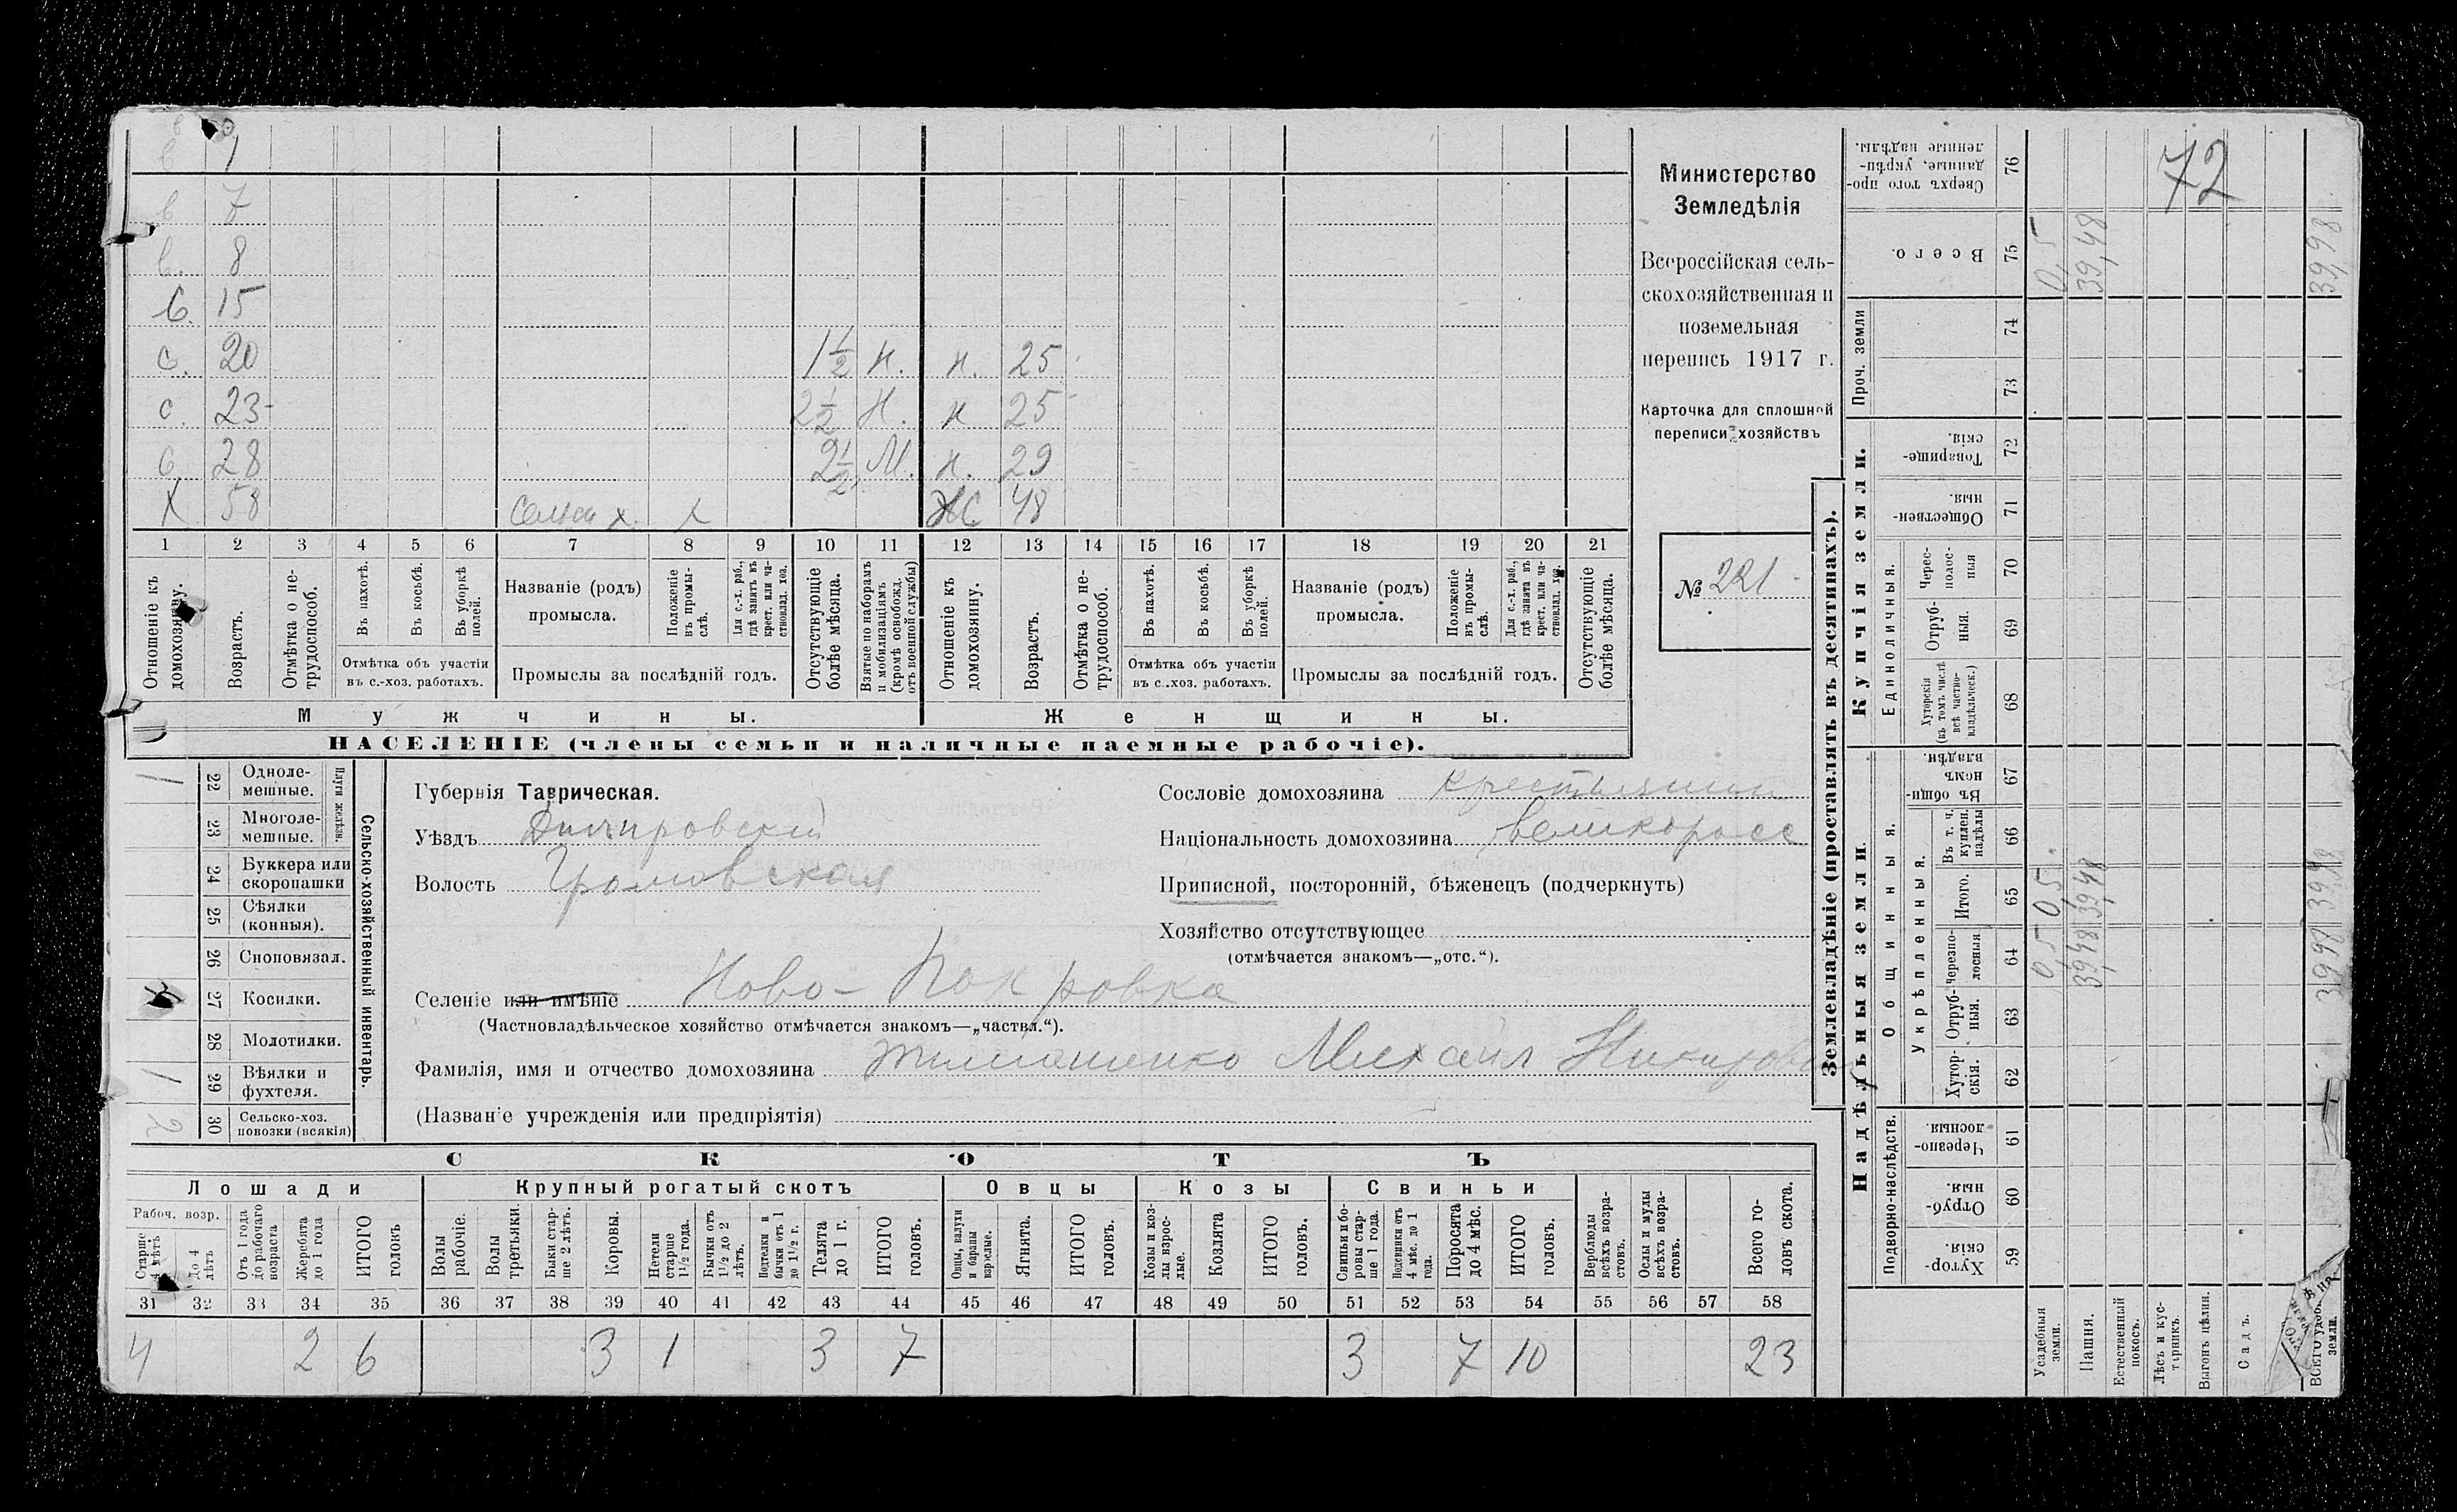 в 1
в 7
в. 8
С. 15
с. 20 1½ Н. н. 25
с 23 2½ Н. н 25
с. 28 2½ М. н. 29
Х 58 х. х Ж 48
1 2 3 4 5 6 7 8 9 10 11 12 13 14 15 16 17 18 19 20 21
Отношеніе къ домохозяину.
Возрастъ.
Отмѣтка о не-трудоспособ.
Въ пахотѣ.
Въ косьбѣ.
Въ уборкѣ полей.
Отмѣтка объ участіи въ с.-хоз. работахъ.
Названіе (родъ) промысла.
Положеніе въ промы-слѣ.
Для с.-х. раб., гдѣ занятъ въ крест. или ча-стновлад. хоз.
Промыслы за послѣдній годъ.
Отсутствующіе болѣе мѣсяца.
Взятые по наборамъ и мобилизаціямъ (кромѣ освобожд. отъ военной службы)
Отношеніе къ домохозяину.
Возрастъ.
Отмѣтка о не-трудоспособ.
Въ пахотѣ.
Въ косьбѣ.
Въ уборкѣ полей.
Отмѣтка объ участіи въ с.-хоз. работахъ.
Названіе (родъ) промысла.
Положеніе въ промы-слѣ.
Для с.-х. раб., гдѣ занята въ крест. или ча-стновлад. хоз.
Промыслы за послѣдній годъ.
Отсутствующіе болѣе мѣсяца.
Мужчины. Женщины.
НАСЕЛЕНІЕ (члены семьи и наличные наемные рабочіе).
Министерство
Земледѣлія
Всероссійская сель-
скохозяйственная и
поземельная
перепись 1917 г.
Карточка для сплошной
переписи хозяйствъ
№ 221
Сельско-хозяйственный инвентарь.
Плуги желѣзн.
22 Одноле-мешные. 1
23 Многоле-мешные.
24 Буккера или скоропашки
25 Сѣялки (конныя).
26 Сноповязал.
27 Косилки.
28 Молотилки.
29 Вѣялки и фухтеля. 1
30 Сельско-хоз. повозки (всякія) 2
Губернія Таврическая.
Уѣздъ Днѣпровскій
Волость Громовская
Селеніе или имѣніе Ново-Покровка
(Частновладѣльческое хозяйство отмѣчается знакомъ—„частвл.“).
Фамилія, имя и отчество домохозяина Михаил
(Названіе учрежденія или предпріятія)
Сословіе домохозяина крестьянин
Національность домохозяина великоросс
Приписной, посторонній, бѣженецъ (подчеркнуть)
Хозяйство отсутствующее
(отмѣчается знакомъ—„отс.“).
СКОТЪ
Лошади Крупный рогатый скотъ Овцы Козы Свиньи
Рабоч. возр.
Старше 4 лѣтъ
До 4 лѣтъ
Отъ 1 года до рабочаго возраста
Жеребята до 1 года
ИТОГО головъ
Волы рабочіе.
Волы третьяки.
Быки стар-ше 2 лѣтъ.
Коровы.
Нетели старше 1½ года.
Бычки отъ 1½ до 2 лѣтъ.
Подтелки и бычки отъ 1 до 1½ г.
Телята до 1 г.
ИТОГО головъ.
Овцы, валухи и бараны взрослые.
Ягнята.
ИТОГО головъ.
Козы и коз-лы взрос-лые.
Козлята
ИТОГО головъ.
Свиньи и бо-ровы стар-ше 1 года.
Подсвинки отъ 4 мѣс. до 1 года.
Поросята до 4 мѣс.
ИТОГО головъ.
Верблюды всѣхъ возра-стовъ.
Ослы и мулы всѣхъ возра-стовъ.
Всего го-ловъ скота.
31 32 33 34 35 36 37 38 39 40 41 42 43 44 45 46 47 48 49 50 51 52 53 54 55 56 57 58
4 2 6 3 1 3 7 3 7 10 23
Землевладѣніе (проставлять въ десятинахъ).
Надѣльныя земли. Купчія земли.
Сверхъ того про-данные, укрѣп-ленные надѣлы. 76
72
Всего. 75 0,5 39,48 39,98
Проч. земли 74 73
Товарище-скія. 72
Обществен-ныя. 71
Единоличныя.
Черес-полос-ныя 70
Отруб-ныя. 69
Хуторскія (въ томъ числѣ всѣ частно-владѣльческ.) 68
Въ общи-номъ владѣн. 67
Общинныя.
Укрѣпленныя.
Въ т. ч. куплен. надѣлы 66
Итого. 65 0,5 39,48 39,98
Черезпо-лосныя 64 0,5 39,48 39,98
Отруб-ныя. 63
Хутор-скія. 62
Подворно-наслѣдств.
Черезпо-лосныя. 61
Отруб-ныя. 60
Хутор-скія. 59
Усадебныя земли.
Пашня.
Естественный покосъ.
Лѣсъ и кус-тарникъ.
Выгонъ цѣлин.
Садъ.
земли.